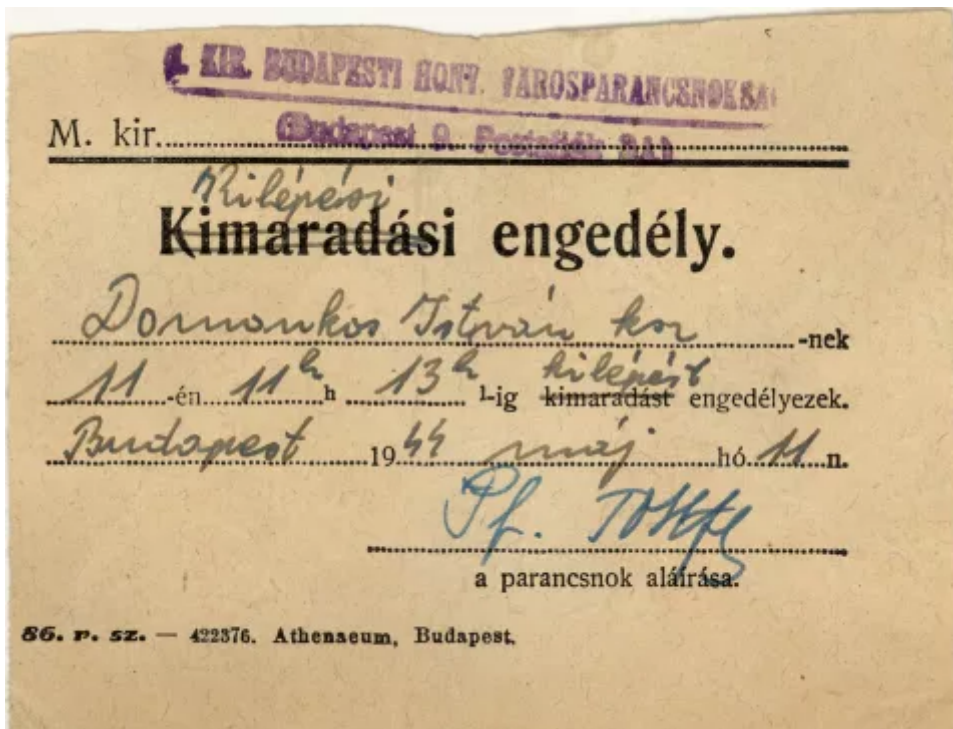 M. KIR. BUDAPESTI HONV. VÁROSPARANCSNOKSÁG
(Budapest 9. Postafiók 24.)
M. kir.
Kilépési
Kimaradási engedély.
Domonkos István ksz -nek
11 -én 11h h 13h h-ig kilépést kimaradást engedélyezek.
Budapest 1944 máj hó 11 n.
Pf.
a parancsnok aláírása.
86. r. sz. — 422376. Athenaeum, Budapest.